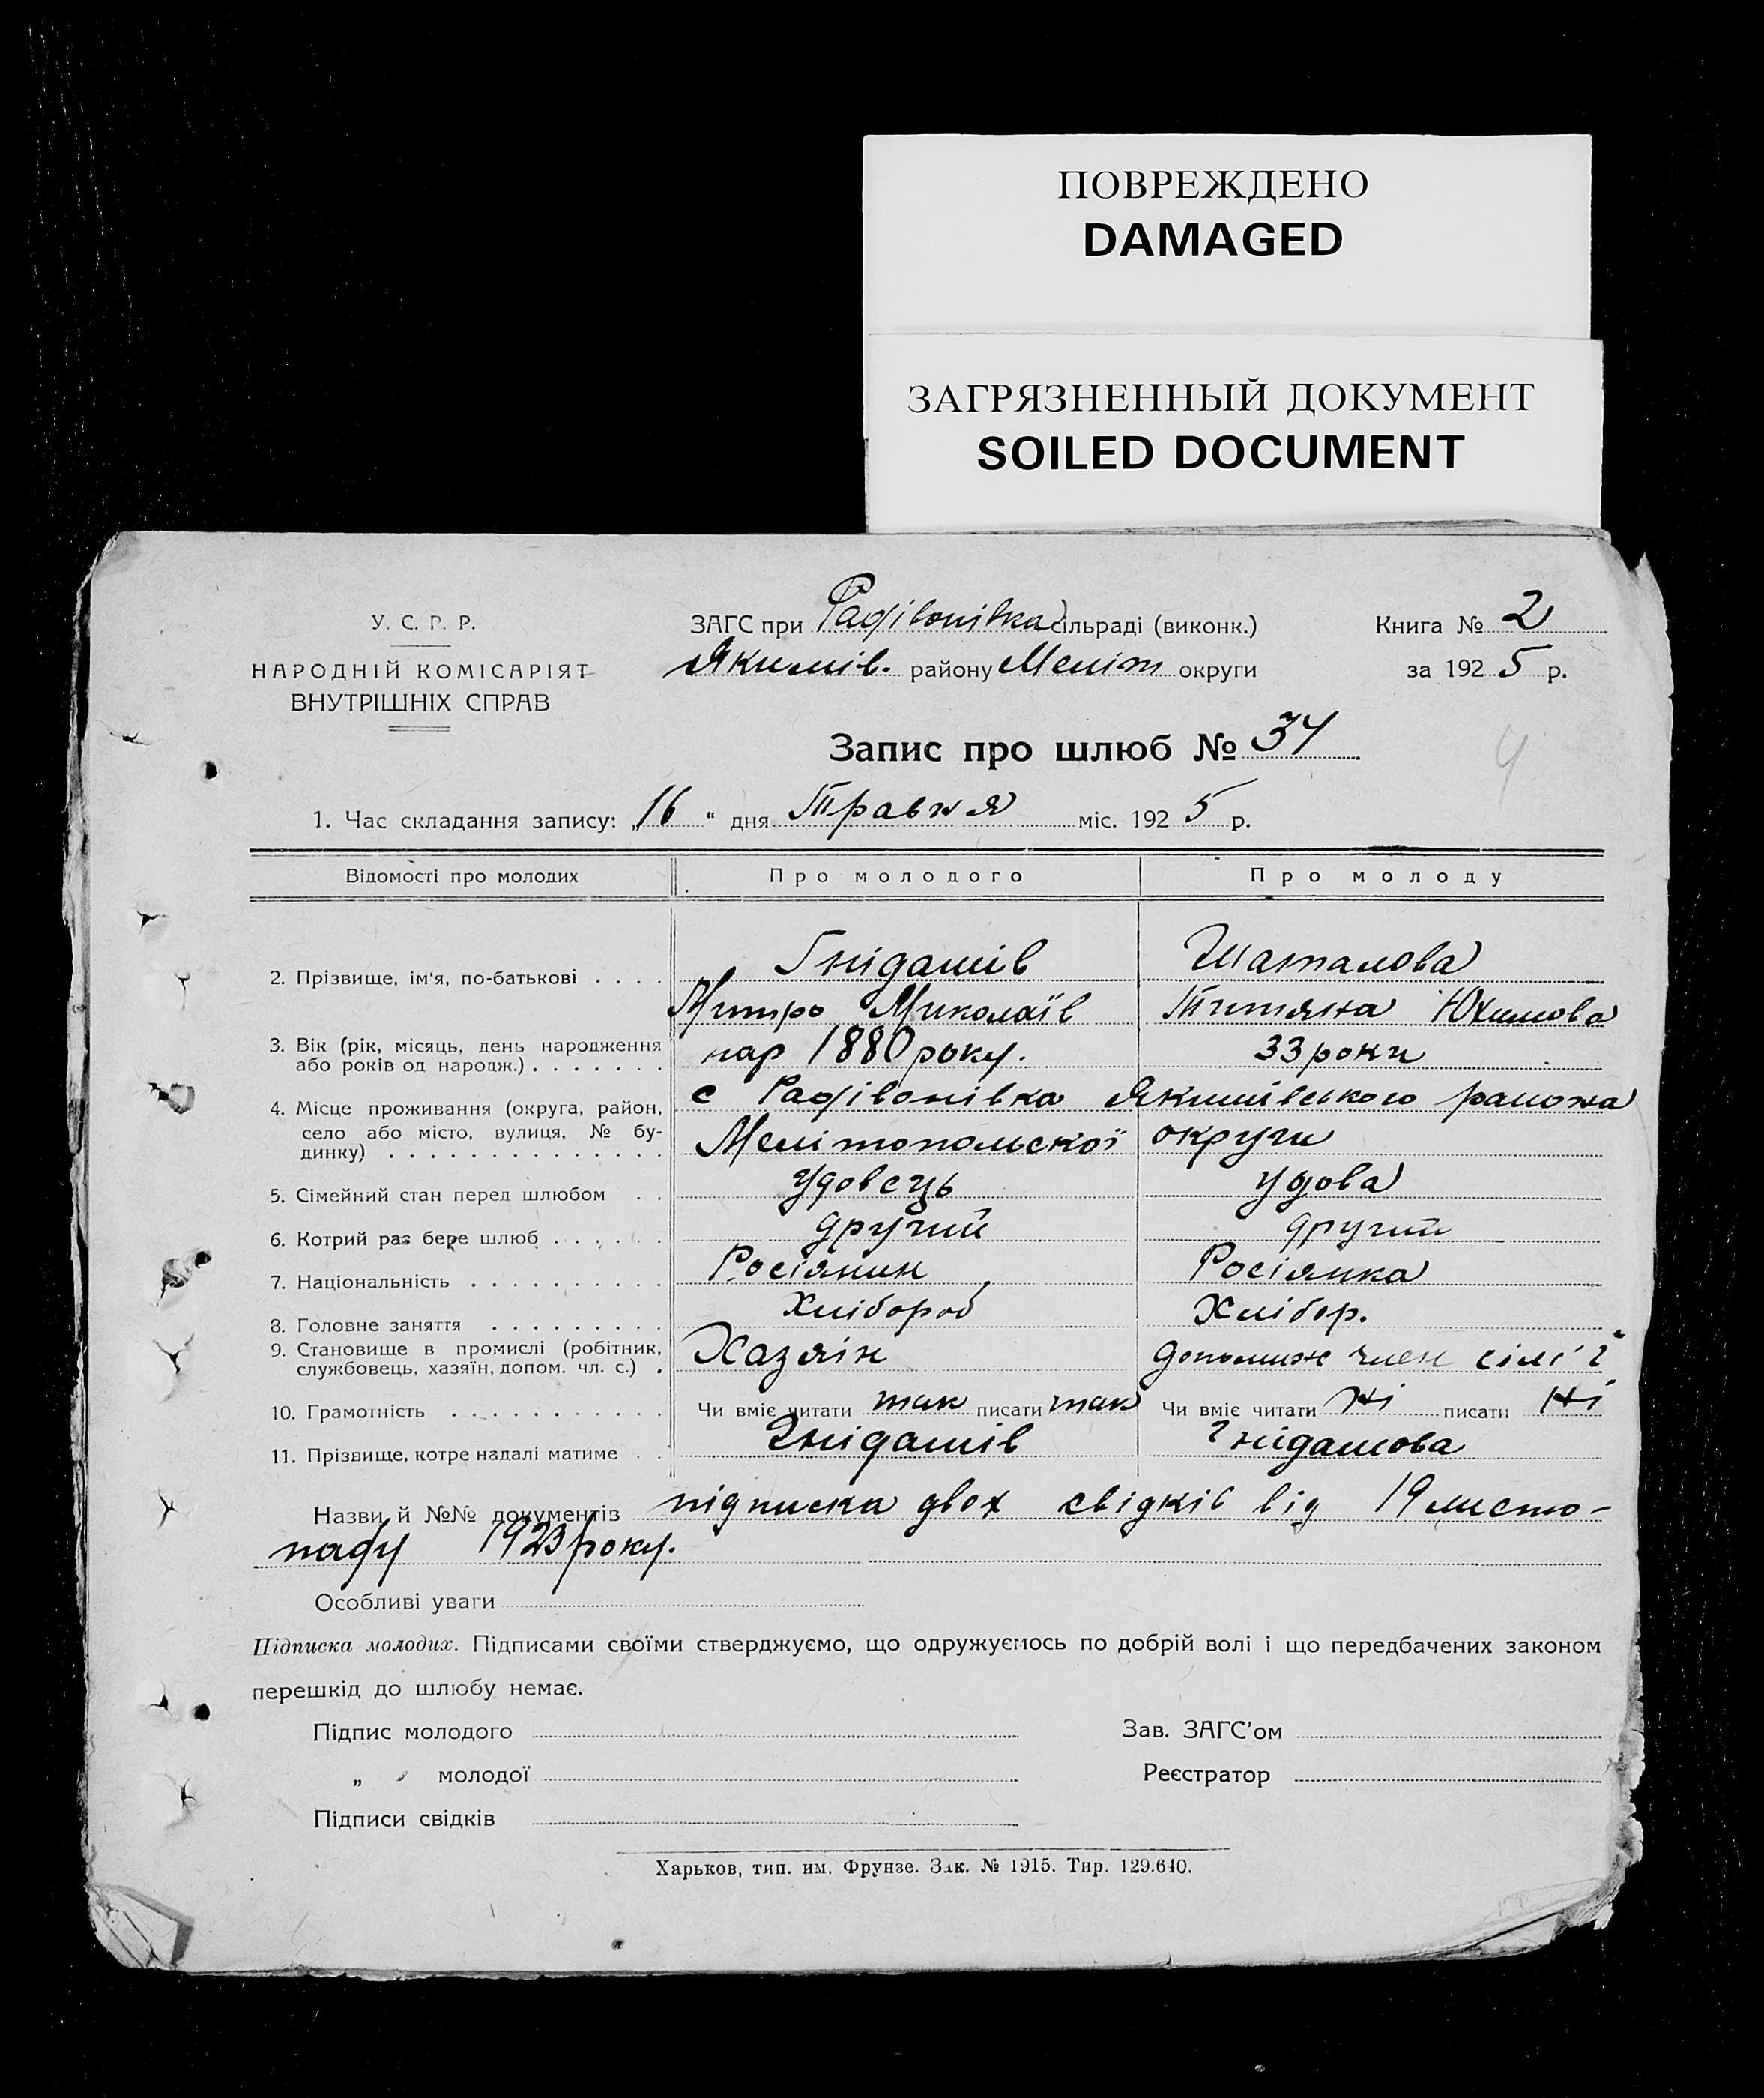 ПОВРЕЖДЕНО
DAMAGED
ЗАГРЯЗНЕННЫЙ ДОКУМЕНТ
SOILED DOCUMENT
У. С. Р. Р.
НАРОДНІЙ КОМІСАРІЯТ
ВНУТРІШНІХ СПРАВ
ЗАГС при Радівонівка сільраді (виконк.)
Якимів. району Меліт округи
Книга № 2
за 1925 р.
Запис про шлюб № 34
4
1. Час складання запису: „16“ дня Травня міс. 1925 р.
Відомості про молодих Про молодого Про молоду
2. Прізвище, ім'я, по-батькові . . . . Гнідашів Шаталова
Митро Миколаїв Титяна Юхимова
3. Вік (рік, місяць, день народження
або років од народж.) . . . . . . . нар 1880 року. 33 роки
4. Місце проживання (округа, район, с Радівонівка Якимівського района
село або місто, вулиця, № бу-
динку) . . . . . . . . . . . . . . Мелітопольської округи
5. Сімейний стан перед шлюбом . . Удовець Удова
6. Котрий раз бере шлюб . . . . . . другий другий
7. Національність . . . . . . . . . . Росіянин Росіянка
8. Головне заняття . . . . . . . . . Хлібороб Хлібор.
9. Становище в промислі (робітник,
службовець, хазяїн, допом. чл. с.) . Хазяін допомиж член сімї
10. Грамотність . . . . . . . . . . . Чи вміє читати так писати так Чи вміє читати Ні писати Ні
11. Прізвище, котре надалі матиме . . Гнідашів Гнідашова
Назви й №№ документів підписка двох свідків від 19 листо-
паду 1923 року.
Особливі уваги
Підписка молодих. Підписами своїми стверджуємо, що одружуємось по добрій волі і що передбачених законом
перешкід до шлюбу немає.
Підпис молодого Зав. ЗАГС'ом
„ молодої Реєстратор
Підписи свідків
Харьков, тип. им. Фрунзе. Зак. № 1915. Тир. 129.640.